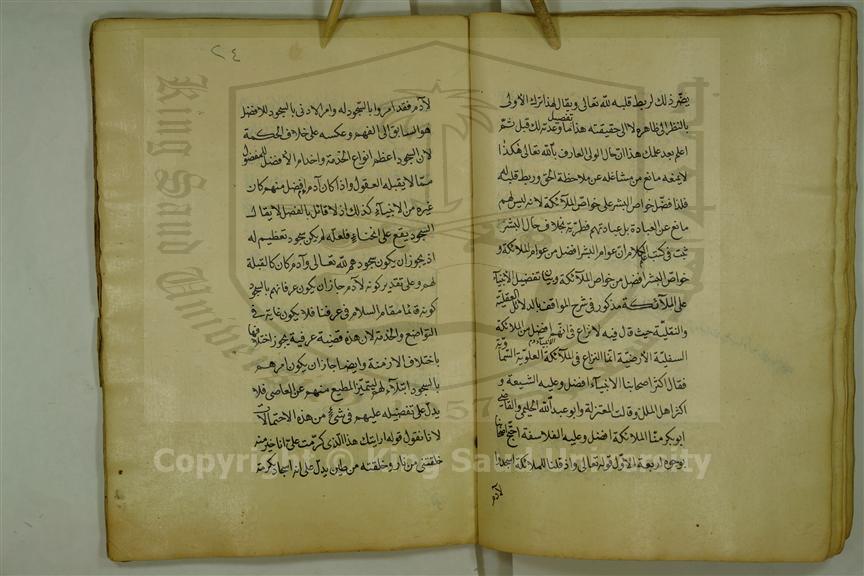 يضر ذلك لربط قلبه لله تعالى ويقال لهذا ترك الاولى
بالنظر الى ظاهره لا الى حقيقته هذا تفصيل ما وعدته لك قبل ثم
اعلم بعد علمك هذا ان حال الولى العارف بالله تعالى هكذا
لا يمنعه مانع من مشاغله عن ملاحظة الحق وربط قلبه لهم
فلذا فضل خواص البشر على خواص الملائكة لانه ليس لهم
مانع عن العبادة بل عبادتهم فطرية بخلاف حال البشر
ثبت في كتب الكلام ان عوام البشر افضل من عوام الملائكة و
خواص البشر افضل من خواص الملائكة وبيان تفضيل الانبياء
على الملائكة مذكور في شرح المواقف بالدلائل العقلية
والنقلية حيث قال فيه لا نزاع في انهم افضل من الملائكة
السفلية الارضية انما النزاع في الملائكة العلوية السماوية
فقال اكثر اصحابنا الانبياء افضل وعليه الشيعة و
اكثر اهل الملل وقالت المعتزلة وابو عبد الله الحليمى والقاضى
ابو بكر منا الملائكة افضل وعليه الفلاسفة احتج اصحابنا
بوجوه اربعة الاول قوله تعالى واذ قلنا للملائكة اسجدوا
لآدم
٢٤
لآدم فقد امروا بالسجود له وامر الادنى بالسجود للافضل
هو السابق الى الفهم وعكسه على خلاف الحكمة
لان السجود اعظم انواع الخدمة واخدام الافضل للمفضول
مما لا يقبله العقول واذا كان آدم افضل منهم كان
غيره من الانبياء كذلك اذ لا قائل بالفصل لا يقال
السجود يقع على انحاء فلعله لم يكن سجود تعظيم له
اذ يجوز ان يكون سجودهم لله تعالى وآدم كان كالقبلة
لهم وعلى تقدير كونه لآدم جاز ان يكون عرفانهم بالسجود
كونه قائما مقام السلام في عرفنا فلا يكون غاية في
التواضع والخدمة لان هذه قضية عرفية يجوز اختلافها
باختلاف الازمنة وايضا جاز ان يكون امرهم
بالسجود ابتلاء لهم ليتميز المطيع منهم عن العاصى فلا
يدل على تفضيله عليهم في شئ من هذه الاحتمالات
لانا نقول قوله ارايتك هذا الذى كرمت على انا خير منه
خلقتنى من نار وخلقته من طين يدل على انه اسجاد تكرمة
Copyright © King Saud University
King Saud University
1957